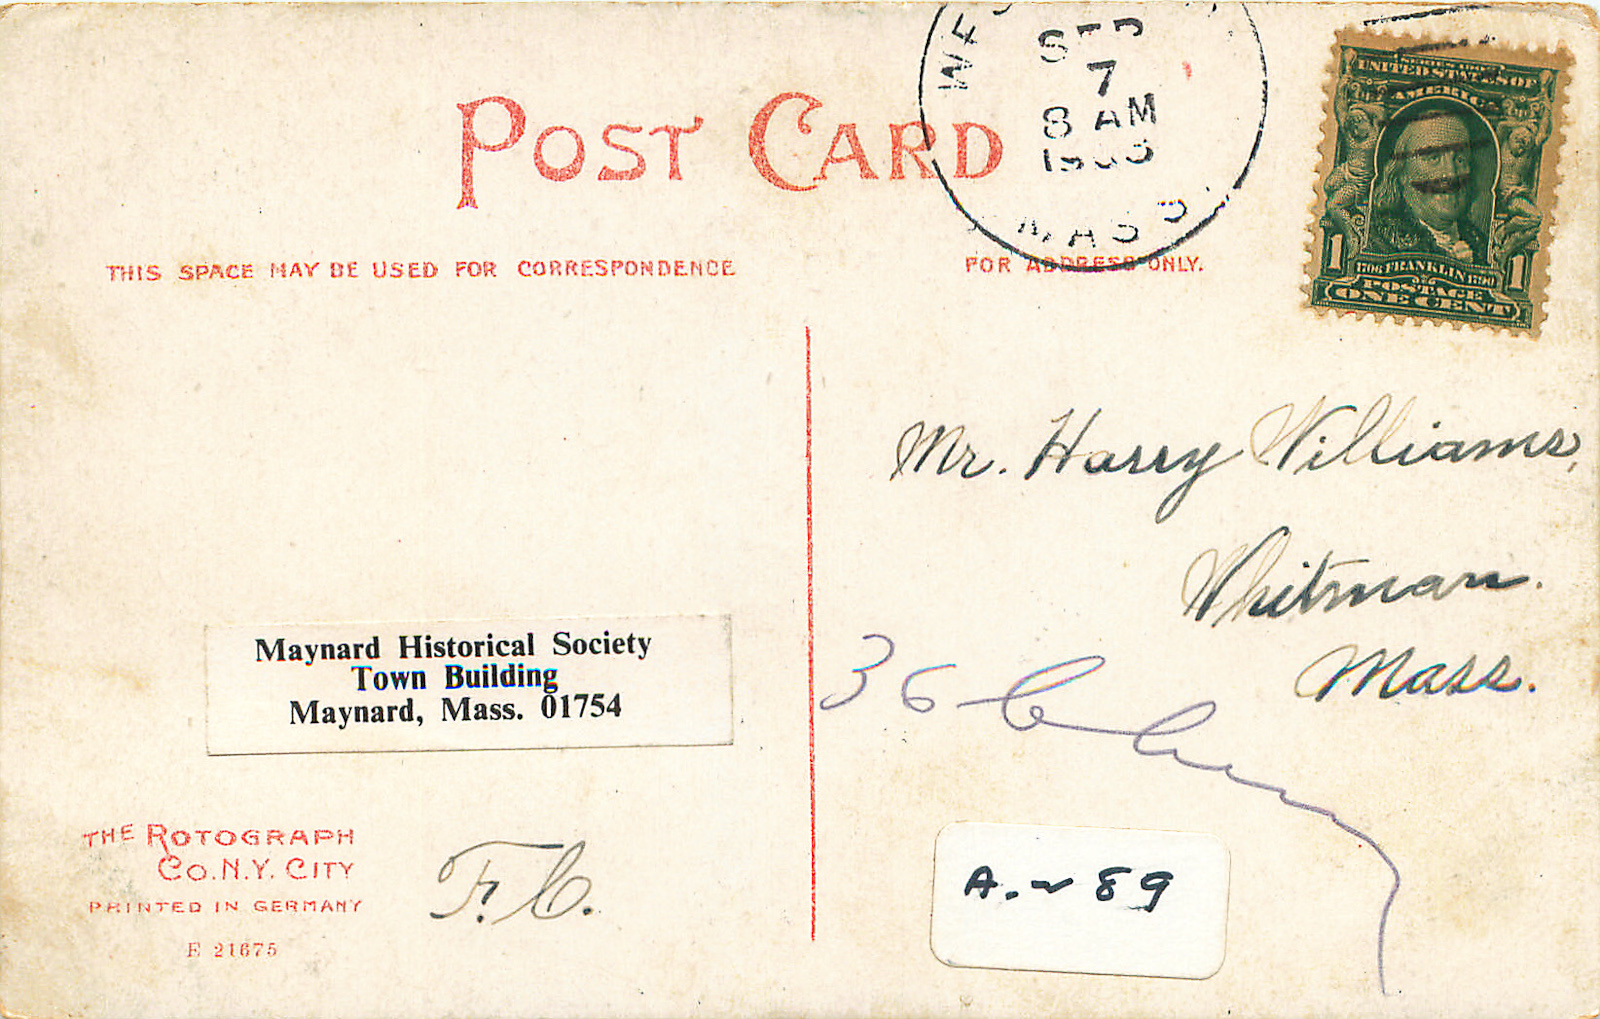 POST CARD
THIS SPACE MAY BE USED FOR CORRESPONDENCE
FOR ADDRESS ONLY.
SEP
7
8 AM
MASS
UNITED STATES OF
AMERICA
1706 FRANKLIN 1790
POSTAGE
1 1
ONE CENT
Mr. Harry Williams,
Whitman.
Mass.
36
Maynard Historical Society
Town Building
Maynard, Mass. 01754
THE ROTOGRAPH
CO. N.Y. CITY
PRINTED IN GERMANY
E 21675
F. C.
A. ~ 89